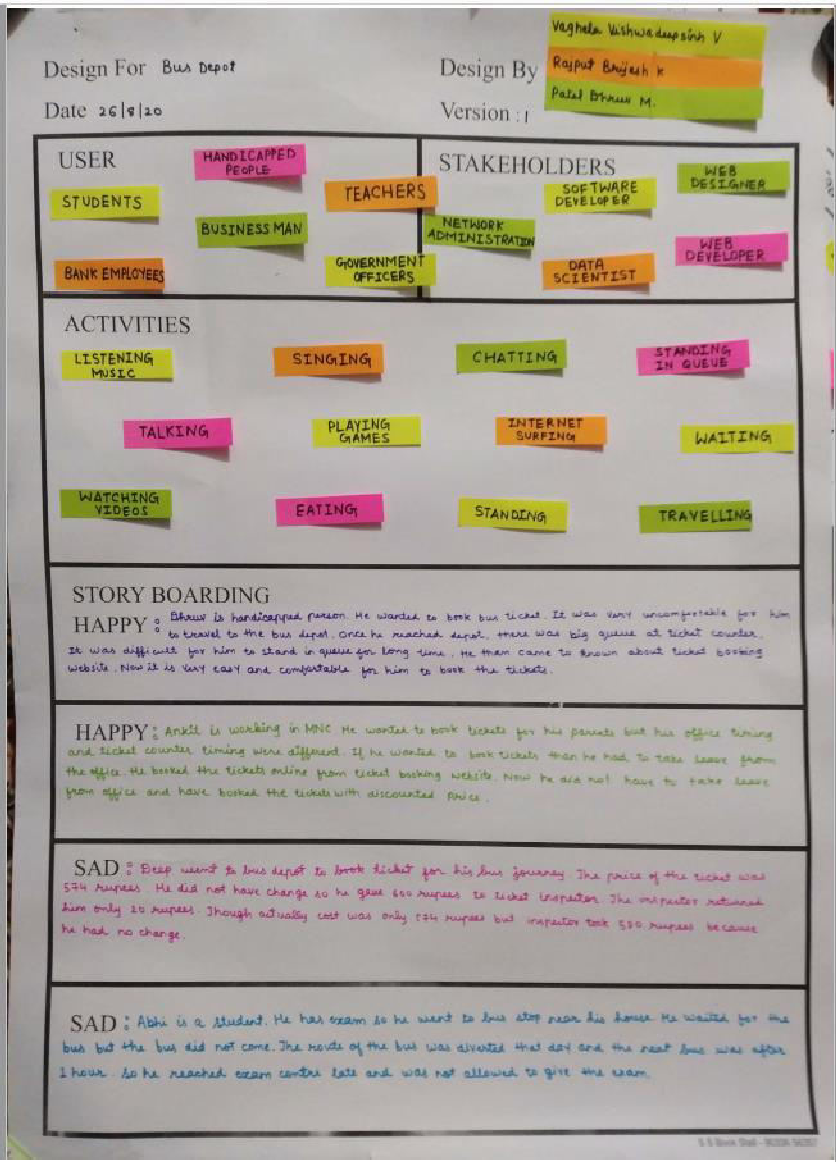 Design For Bus Depot
Date 26/8/20
Design By
Vaghela Vishwadeepsinh V
Rajput Brijesh K
Patel Dhruv M.
Version : 1
USER
HANDICAPPED
PEOPLE
STUDENTS
TEACHERS
BUSINESS MAN
BANK EMPLOYEES
GOVERNMENT
OFFICERS
STAKEHOLDERS
WEB
DESIGNER
SOFTWARE
DEVELOPER
NETWORK
ADMINISTRATION
WEB
DEVELOPER
DATA
SCIENTIST
ACTIVITIES
LISTENING
MUSIC
SINGING
CHATTING
STANDING
IN QUEUE
TALKING
PLAYING
GAMES
INTERNET
SURFING
WAITING
WATCHING
VIDEOS
EATING
STANDING
TRAVELLING
STORY BOARDING
HAPPY : Dhruv is handicapped person. He wanted to book bus ticket. It was very uncomfortable for him
to travel to the bus depot. Once he reached depot, there was big queue at ticket counter.
It was difficult for him to stand in queue for long time. He then came to known about ticket booking
website. Now it is very easy and comfortable for him to book the tickets.
HAPPY : Ankit is working in MNC He wanted to book tickets for his parents but his office timing
and ticket counter timing were different. If he wanted to book tickets than he had to take leave from
the office. He booked the tickets online from ticket booking website. Now he did not have to take leave
from office and have booked the tickets with discounted Price.
SAD : Deep went to bus depot to book ticket for his bus journey. The price of the ticket was
574 rupees. He did not have change so he gave 600 rupees to ticket inspector. The inspector returned
him only 20 rupees. Though actually cost was only 574 rupees but inspector took 580 rupees because
he had no change.
SAD : Abhi is a student. He has exam so he went to bus stop near his house He waited for the
bus but the bus did not come. The route of the bus was diverted that day and the next bus was after
1 hour. So he reached exam centre late and was not allowed to give the exam.